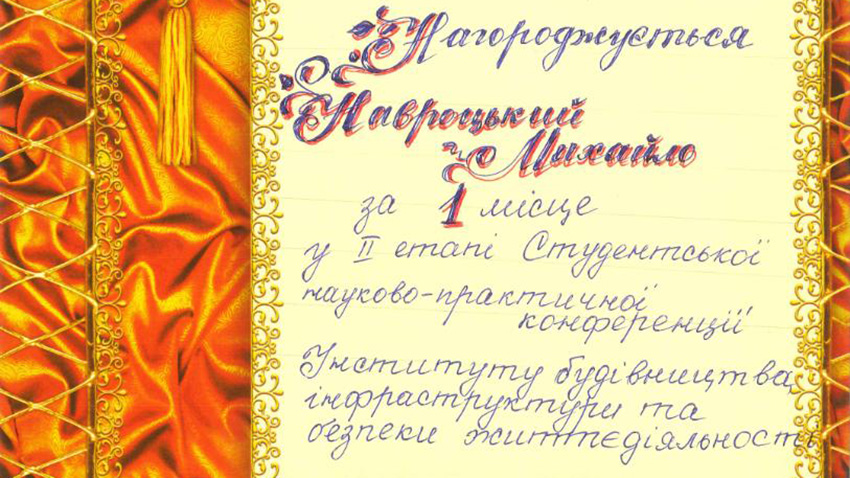 Нагороджується
Навроцький
Михайло
за 1 місце
у II етапі Студентської
науково-практичної
конференції
Інституту будівництва,
інфраструктури та
безпеки життєдіяльності